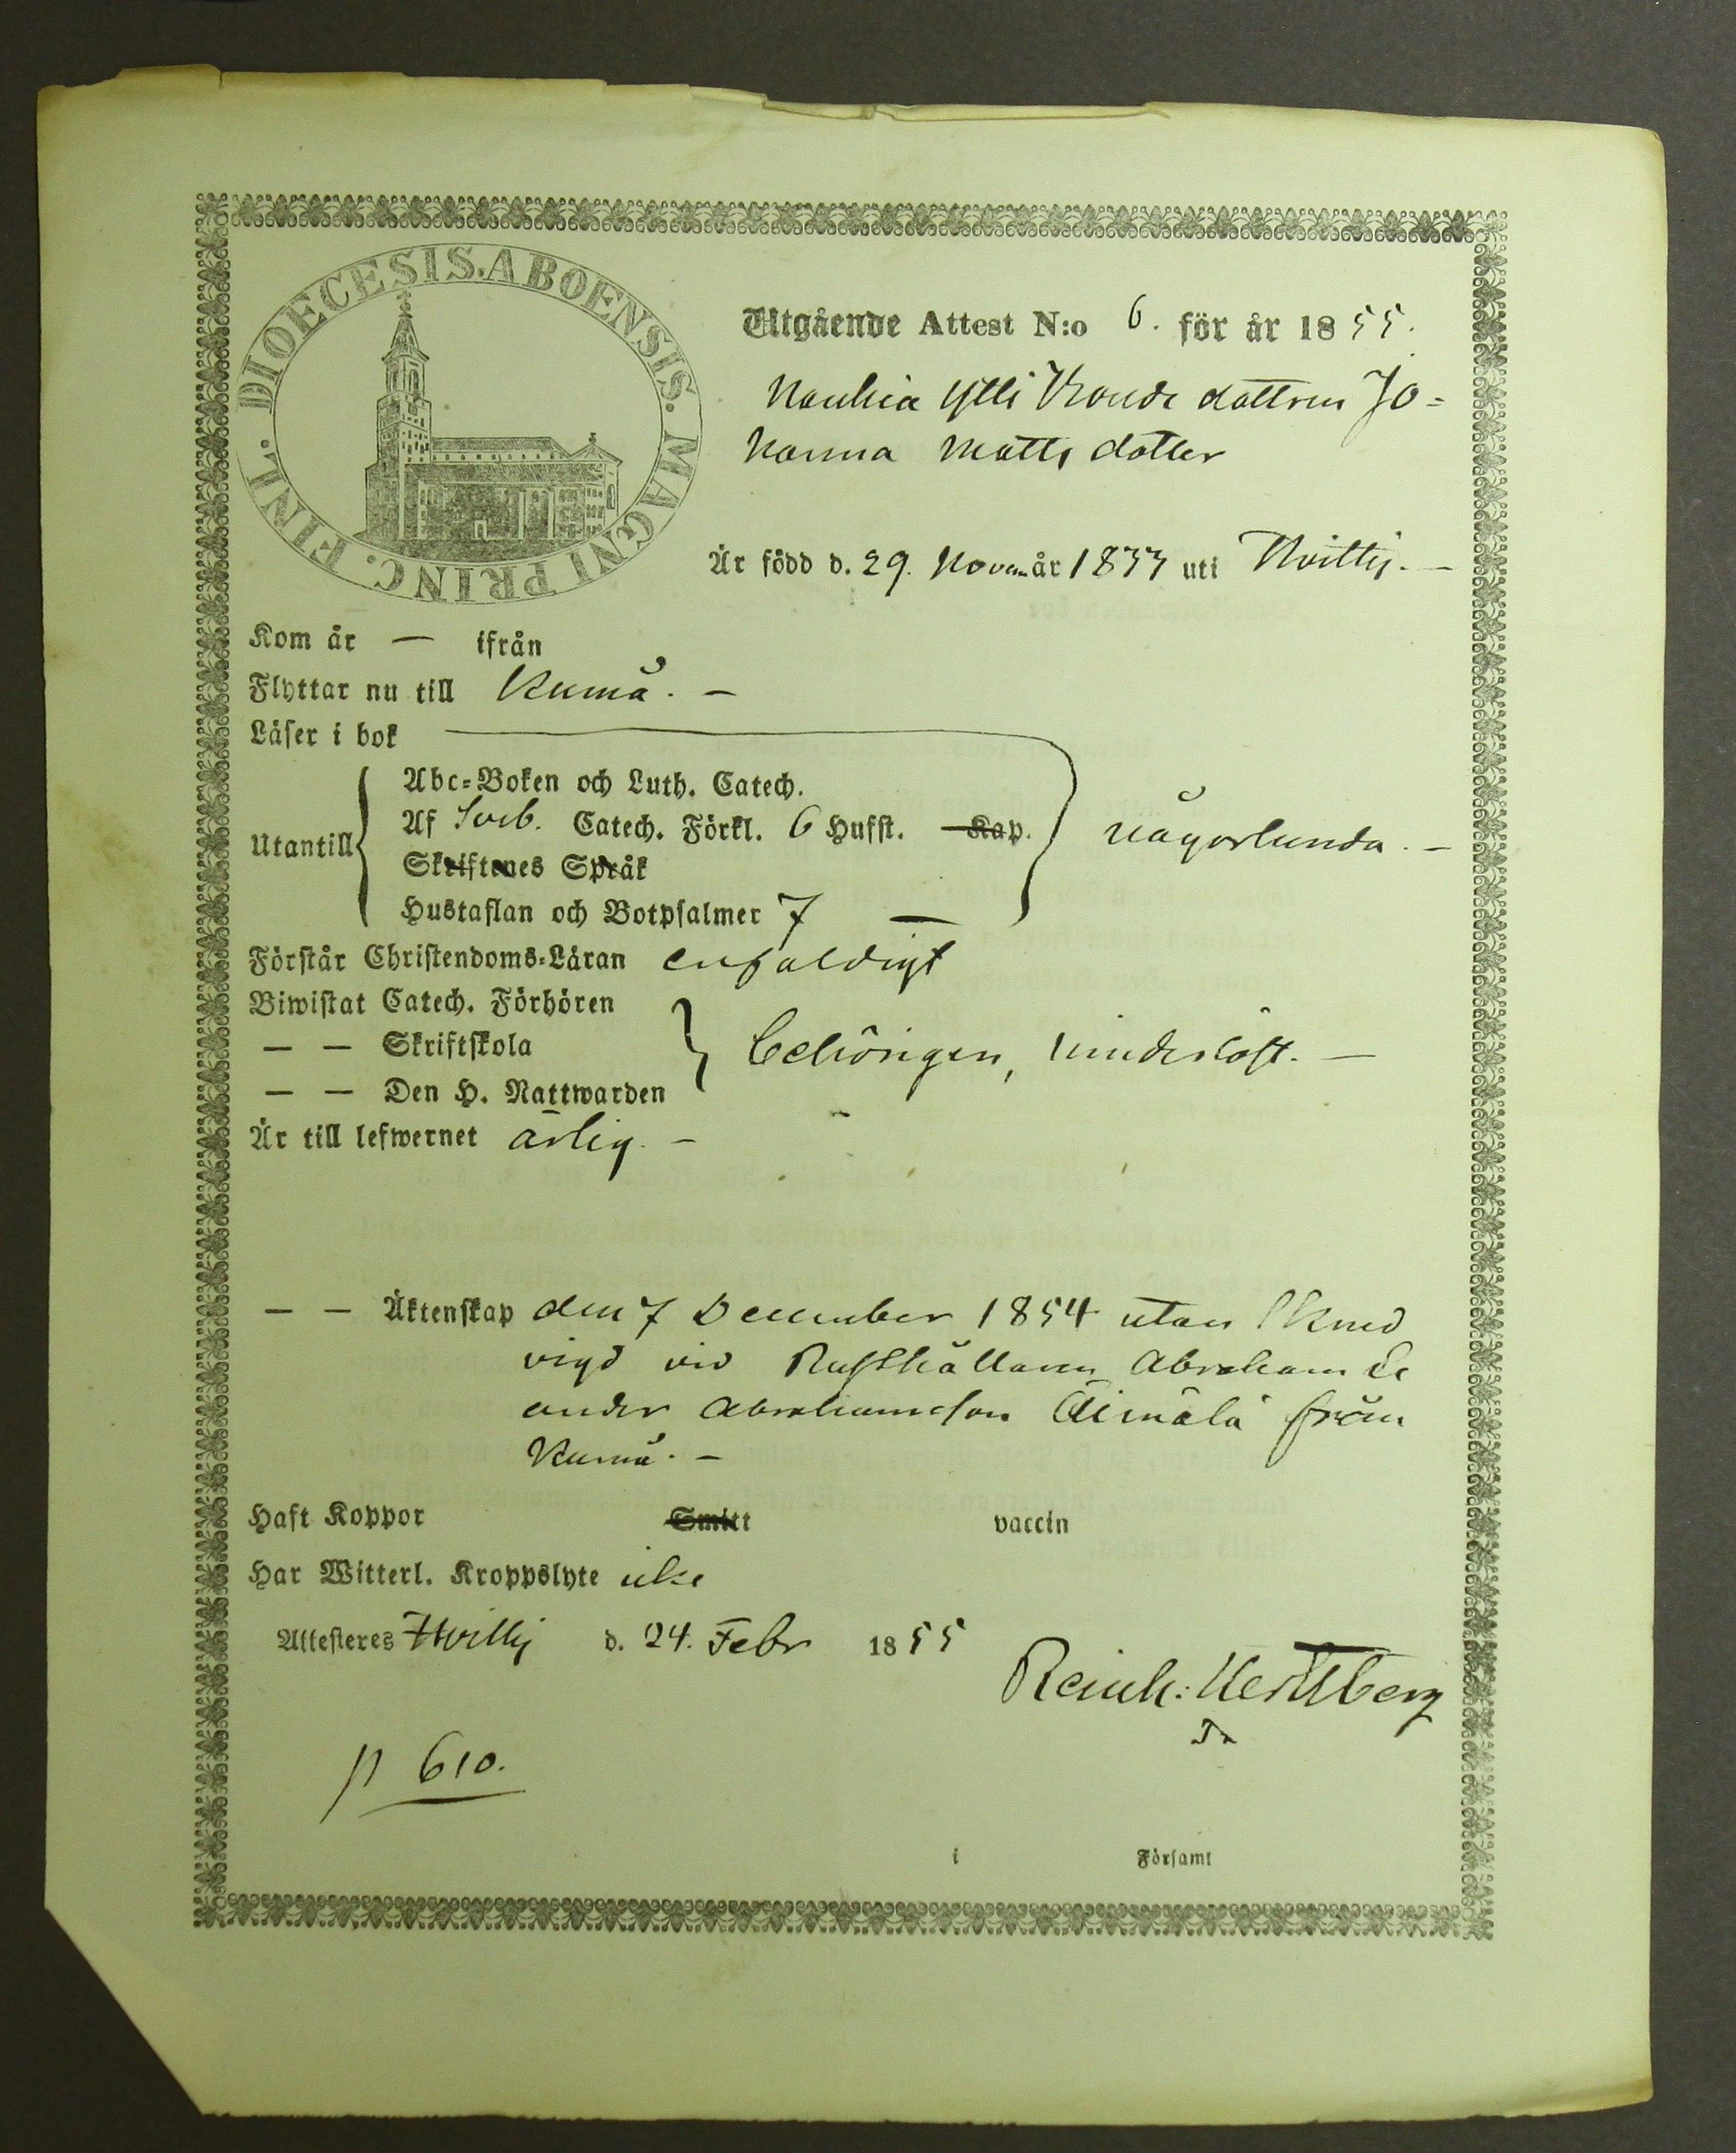 DIOECESIS. ABOENSIS. MAGNI PRINC. FINL.
Utgående Attest N:o 6. för år 1855.
Ylli dottren Jo=
hanna Matts dotter
Är född d. 29. Novem år 1833 uti Hvittis. —
Kom år — ifrån
Flyttar nu till Kumå. —
Läser i bok
Abc=Boken och Luth. Catech.
Af Sveb. Catech. Förkl. 6 Hufst. Kap.
Utantill någorlunda. —
Skriftenes Språk
Hustaflan och Botpsalmer 7 —
Förstår Christendoms=Läran enfaldigt
Biwistat Catech. Förhören
— — Skriftskola behörigen,
— — Den H. Nattwarden
Är till lefwernet ärlig. —
— — Äktenskap den 7 December 1854 utan
vigd vid Rusthållaren Abraham Le
ander Abrahamsson från
Kumå. —
Haft Koppor Smitt vaccin
Har Witterl. Kroppslyte icke
Attesteres Hvittis d. 24. Febr 1855
Reinh: Hertzberg
p 610.
i Församl